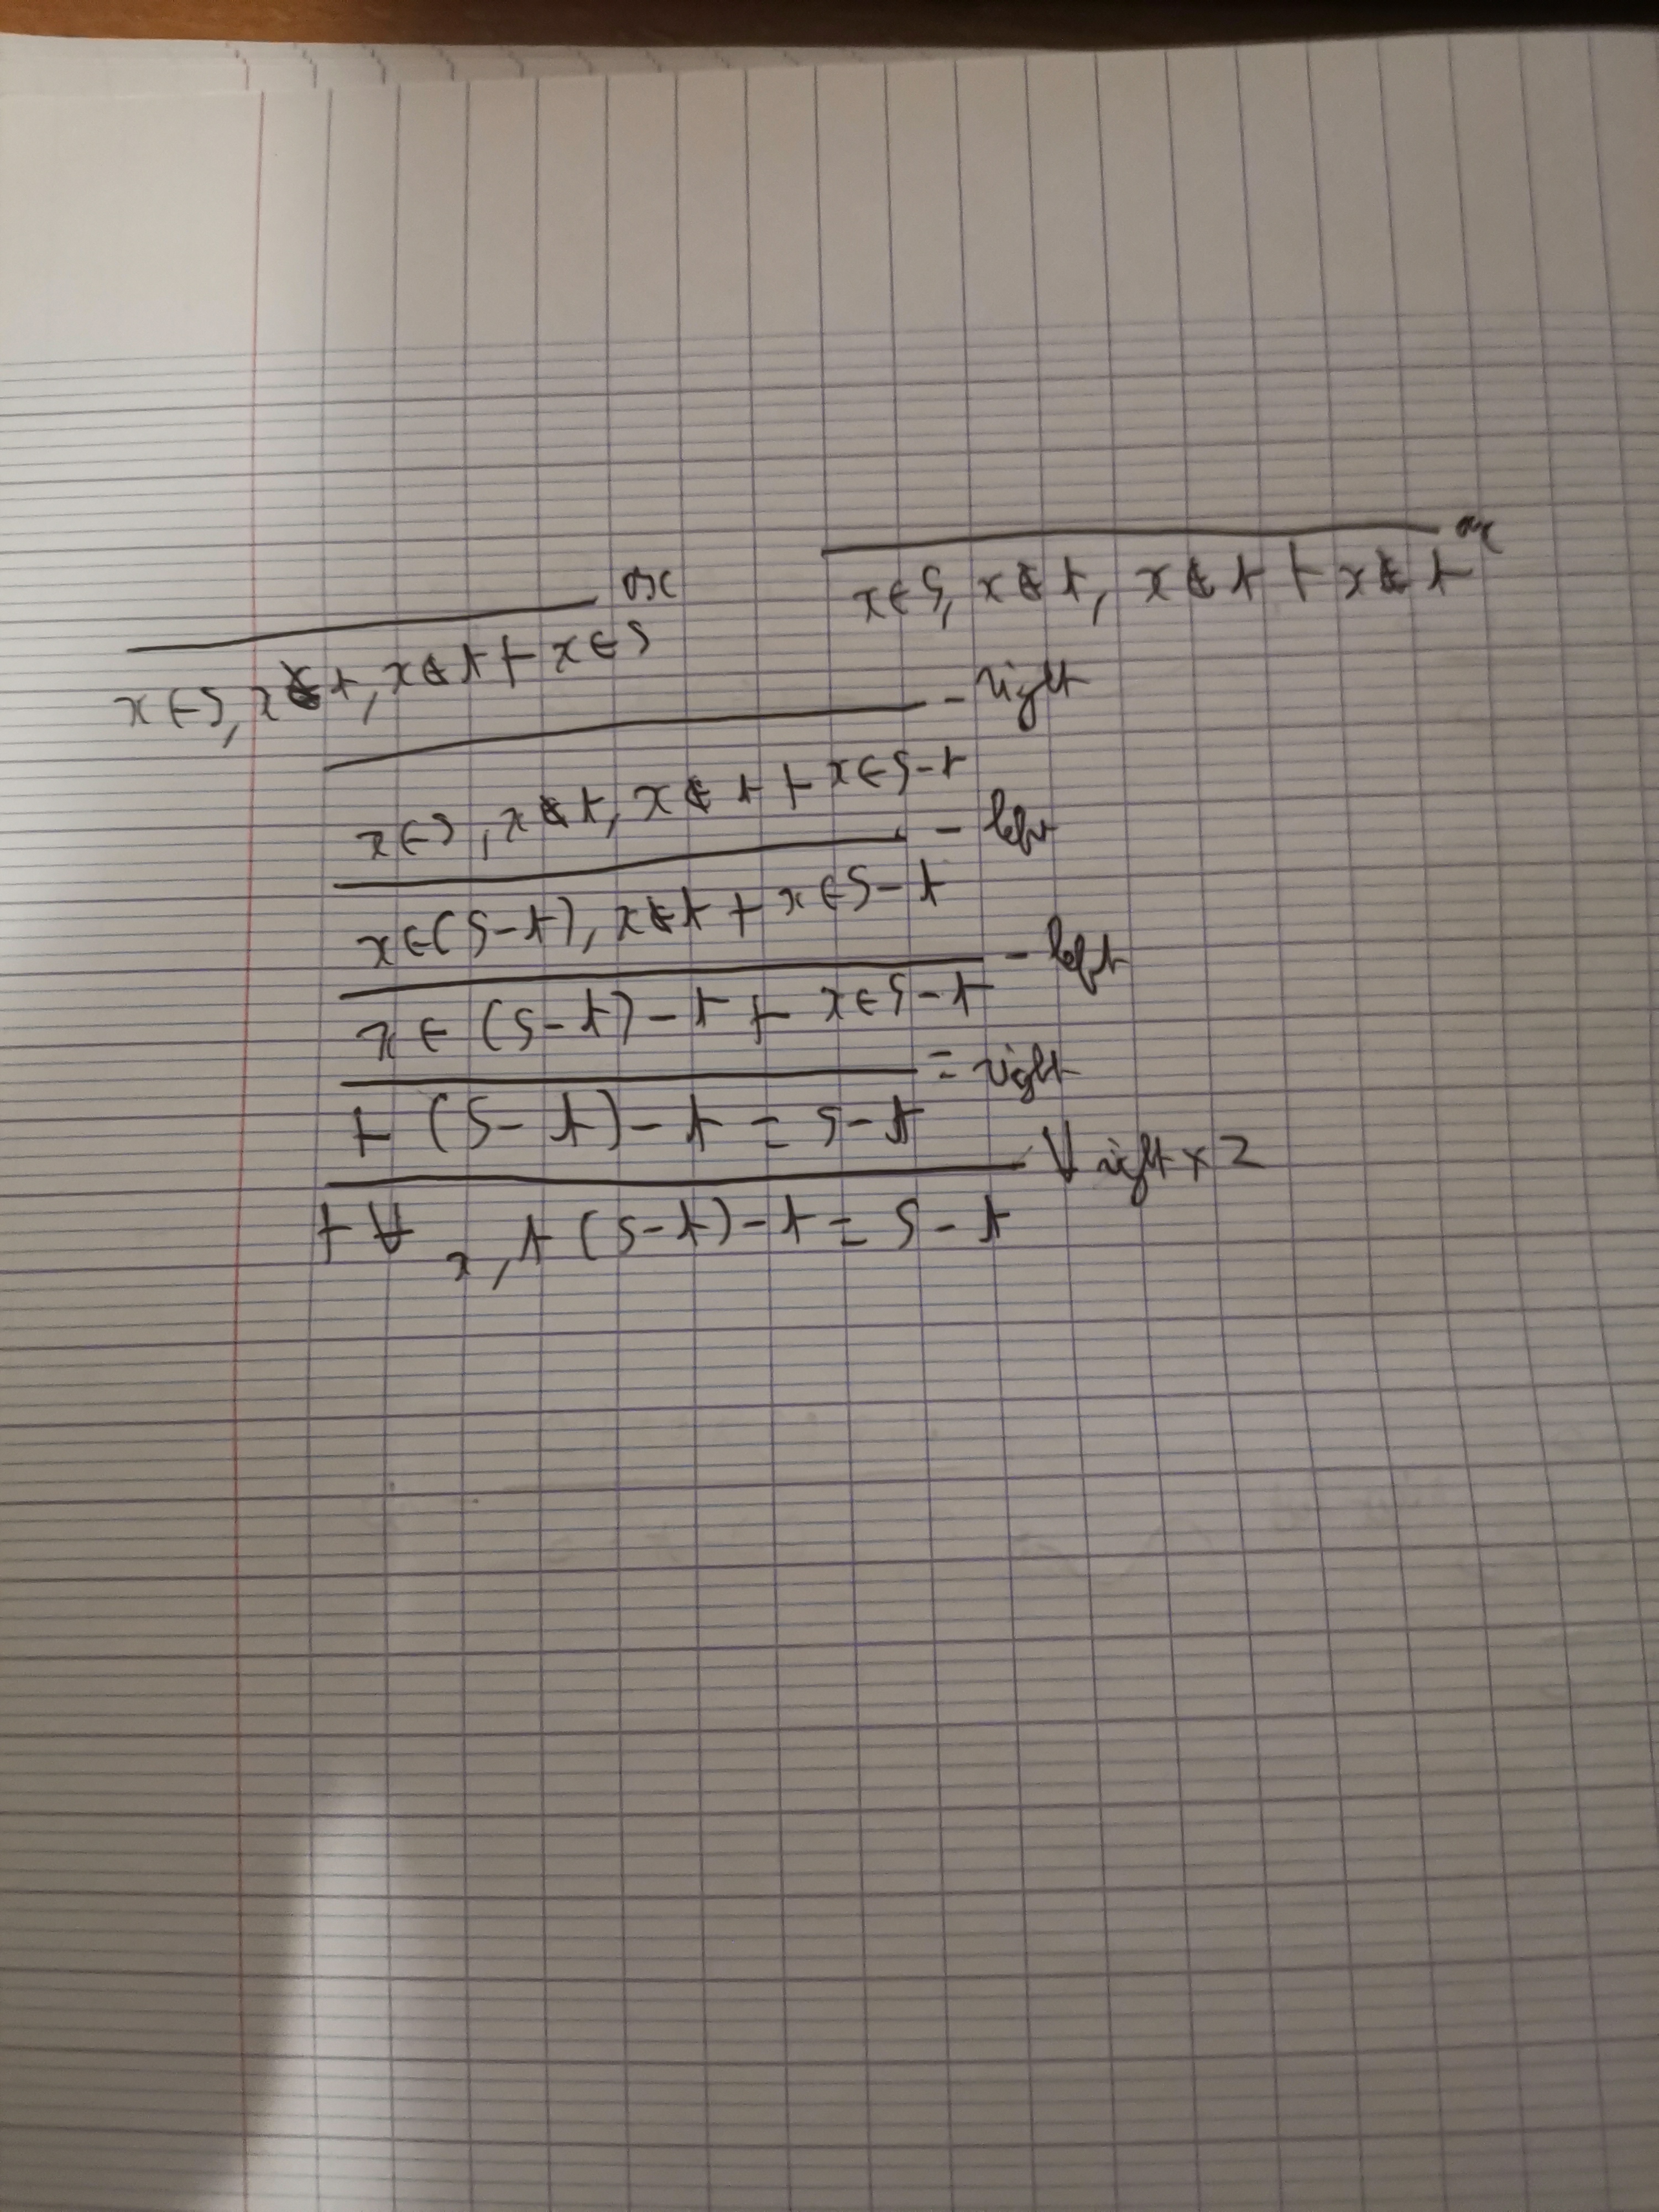 ax
x∈S, x∉t, x∉t ⊢ x∉t
ax
x∈S, x∉t, x∉t ⊢ x∈S
- right
x∈S, x∉t, x∉t ⊢ x∈S-t
- left
x∈(S-t), x∉t ⊢ x∈S-t
- left
x∈(S-t)-t ⊢ x∈S-t
= right
⊢ (S-t)-t = S-t
∀ right x 2
⊢ ∀ , t (S-t)-t = S-t